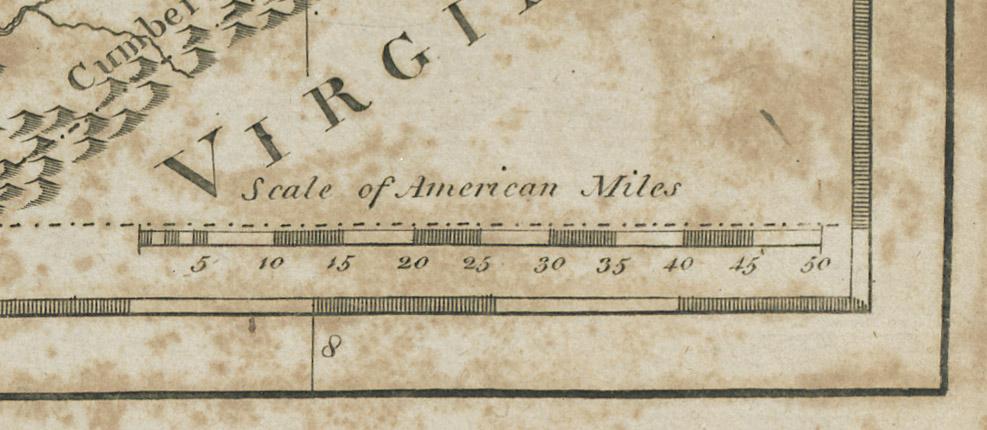 Cumber
VIRGI
Scale of American Miles
5 10 15 20 25 30 35 40 45 50
8